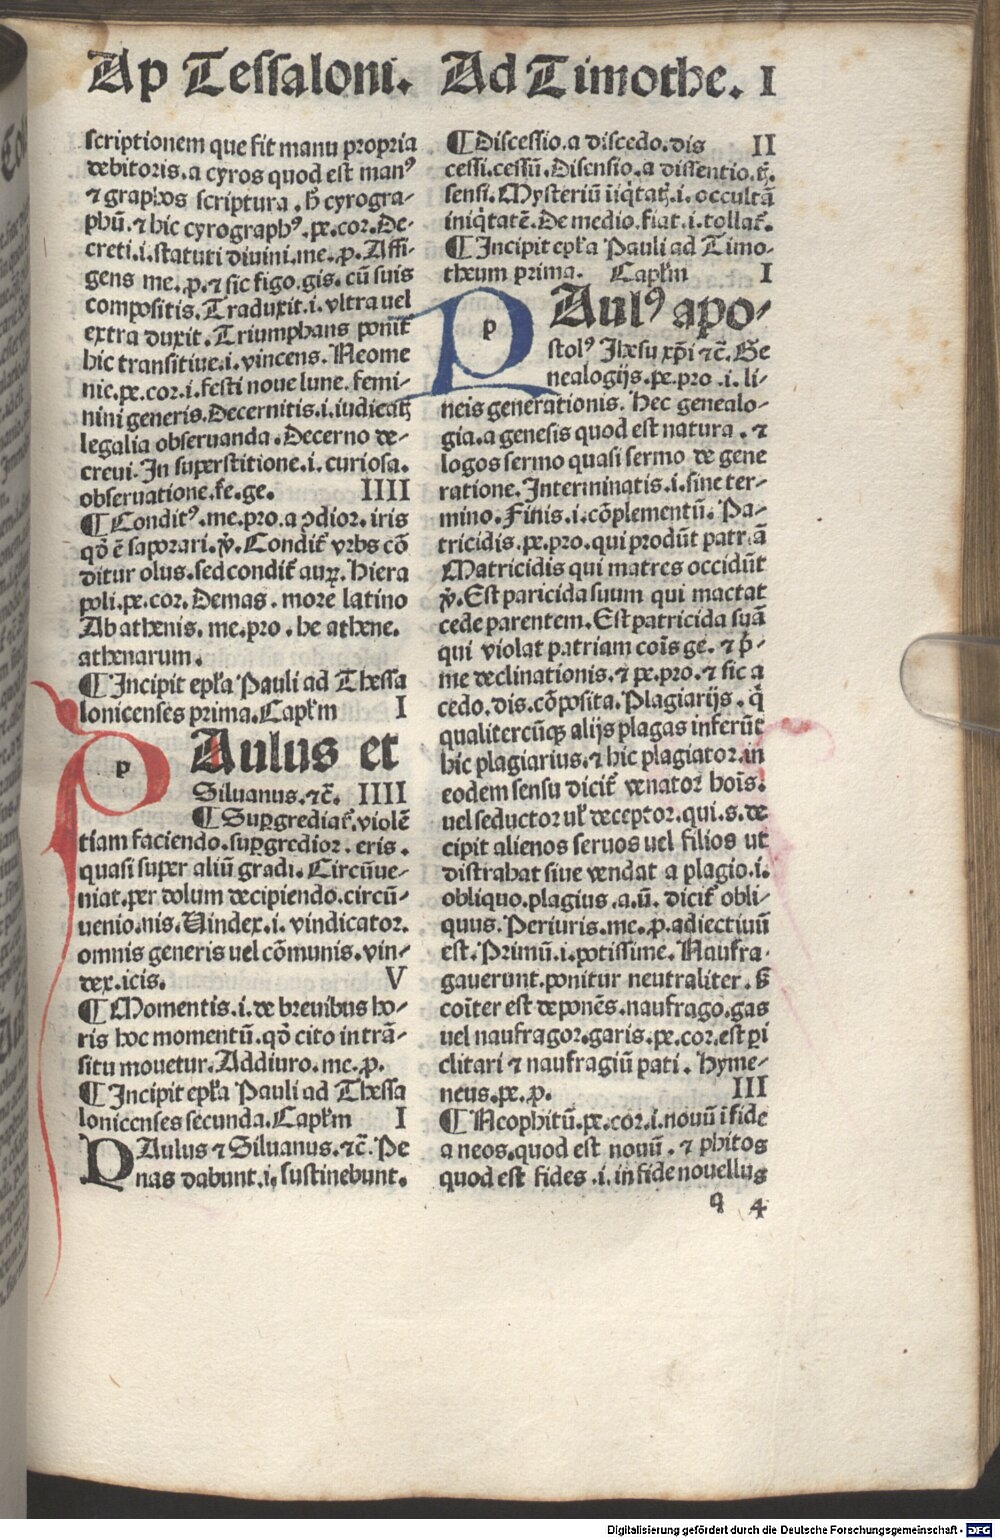 Ap Tessaloni. Ad Timothe. I
scriptionem que fit manu propria
debitoris. a cyros quod est manꝰ
⁊ graphos scriptura. hͦ cyrogra-
phū. ⁊ hic cyrographꝰ. pe. cor. De-
creti. i. statuti diuini. me. ꝓ. Affi-
gens me. ꝓ. ⁊ sic figo. gis. cū suis
compositis. Traduxit. i. vltra uel
extra duxit. Triumphans ponit᷑
hic transitiue. i. vincens. Neome
nie. pe. cor. i. festi noue lune. femi-
nini generis. Decernitis. i. iudicatꝫ
legalia obseruanda. Decerno de-
creui. In superstitione. i. curiosa.
obseruatione. fe. ge. IIII
¶ Conditꝰ. me. pro. a ꝯdior. iris
qď ē saporari. ꝟ. Condit᷑ vrbs cō
ditur olus. sed condit᷑ auꝝ. Hiera
poli. pe. cor. Demas. more latino
Ab athenis. me. pro. he athene.
athenarum.
¶ Incipit epl̄a Pauli ad Thessa
lonicenses prima. Capl̄m I
p Aulus et
Siluanus. ⁊c̄. IIII
¶ Suꝑgrediat᷑. violē
tiam faciendo. suꝑgredior. eris.
quasi super aliū gradi. Circūue-
niat. per dolum decipiendo. circū-
uenio. nis. Uindex. i. vindicator.
omnis generis uel cōmunis. vin-
dex. icis. V
¶ Momentis. i. de breuibus ho-
ris hoc momentū. qď cito in trā-
situ mouetur. Addiuro. me. ꝓ.
¶ Incipit epl̄a Pauli ad Thessa
lonicenses secunda. Capl̄m I
PAulus ⁊ Siluanus. ⁊c̄. Pe
nas dabunt. i. sustinebunt.
¶ Discessio. a discedo. dis II
cessi. cessū. Disensio. a dissentio. tꝫ.
sensi. Mysteriū īiq̇tatꝫ. i. occultā
iniq̇tatē. De medio. fiat. i. tollat᷑.
¶ Incipit epl̄a Pauli ad Timo-
theum prima. Capl̄m I
p Aulꝰ apo-
stolꝰ Jhesu xp̄i ⁊c̄. Ge
nealogijs. pe. pro. i. li-
neis generationis. hec genealo-
gia. a genesis quod est natura. ⁊
logos sermo quasi sermo de gene
ratione. Interminatis. i. sine ter-
mino. Finis. i. cōplementū. Pa-
tricidis. pe. pro. qui prodūt patriā
Matricidis qui matres occidūt
ꝟ. Est paricida suum qui mactat
cede parentem. Est patricida suā
qui violat patriam coīs ge. ⁊ p̄-
me declinationis. ⁊ pe. pro. ⁊ sic a
cedo. dis. cōposita. Plagiarijs. q̇
qualitercūqꝫ alijs plagas inferūt
hic plagiarius. ⁊ hic plagiator. in
eodem sensu dicit᷑ venator hoīs.
uel seductor ul̄ deceptor. qui. s. de
cipit alienos seruos uel filios ut
distrahat siue vendat a plagio. i.
obliquo. plagius. a. ū. dicit᷑ obli-
quus. Periuris. me. ꝓ. adiectiuū
est. Primū. i. potissime. Naufra-
gauerunt. ponitur neutraliter. sꝫ
coīter est deponēs. naufrago. gas
uel naufragor. garis. pe. cor. est ꝑi
clitari ⁊ naufragiū pati. Hyme-
neus. pe. ꝓ. III
¶ Neophitū. pe. cor. i. nouū ī fide
a neos. quod est nouū. ⁊ phitos
quod est fides. i. in fide nouellus
q 4
Digitalisierung gefördert durch die Deutsche Forschungsgemeinschaft - DFG